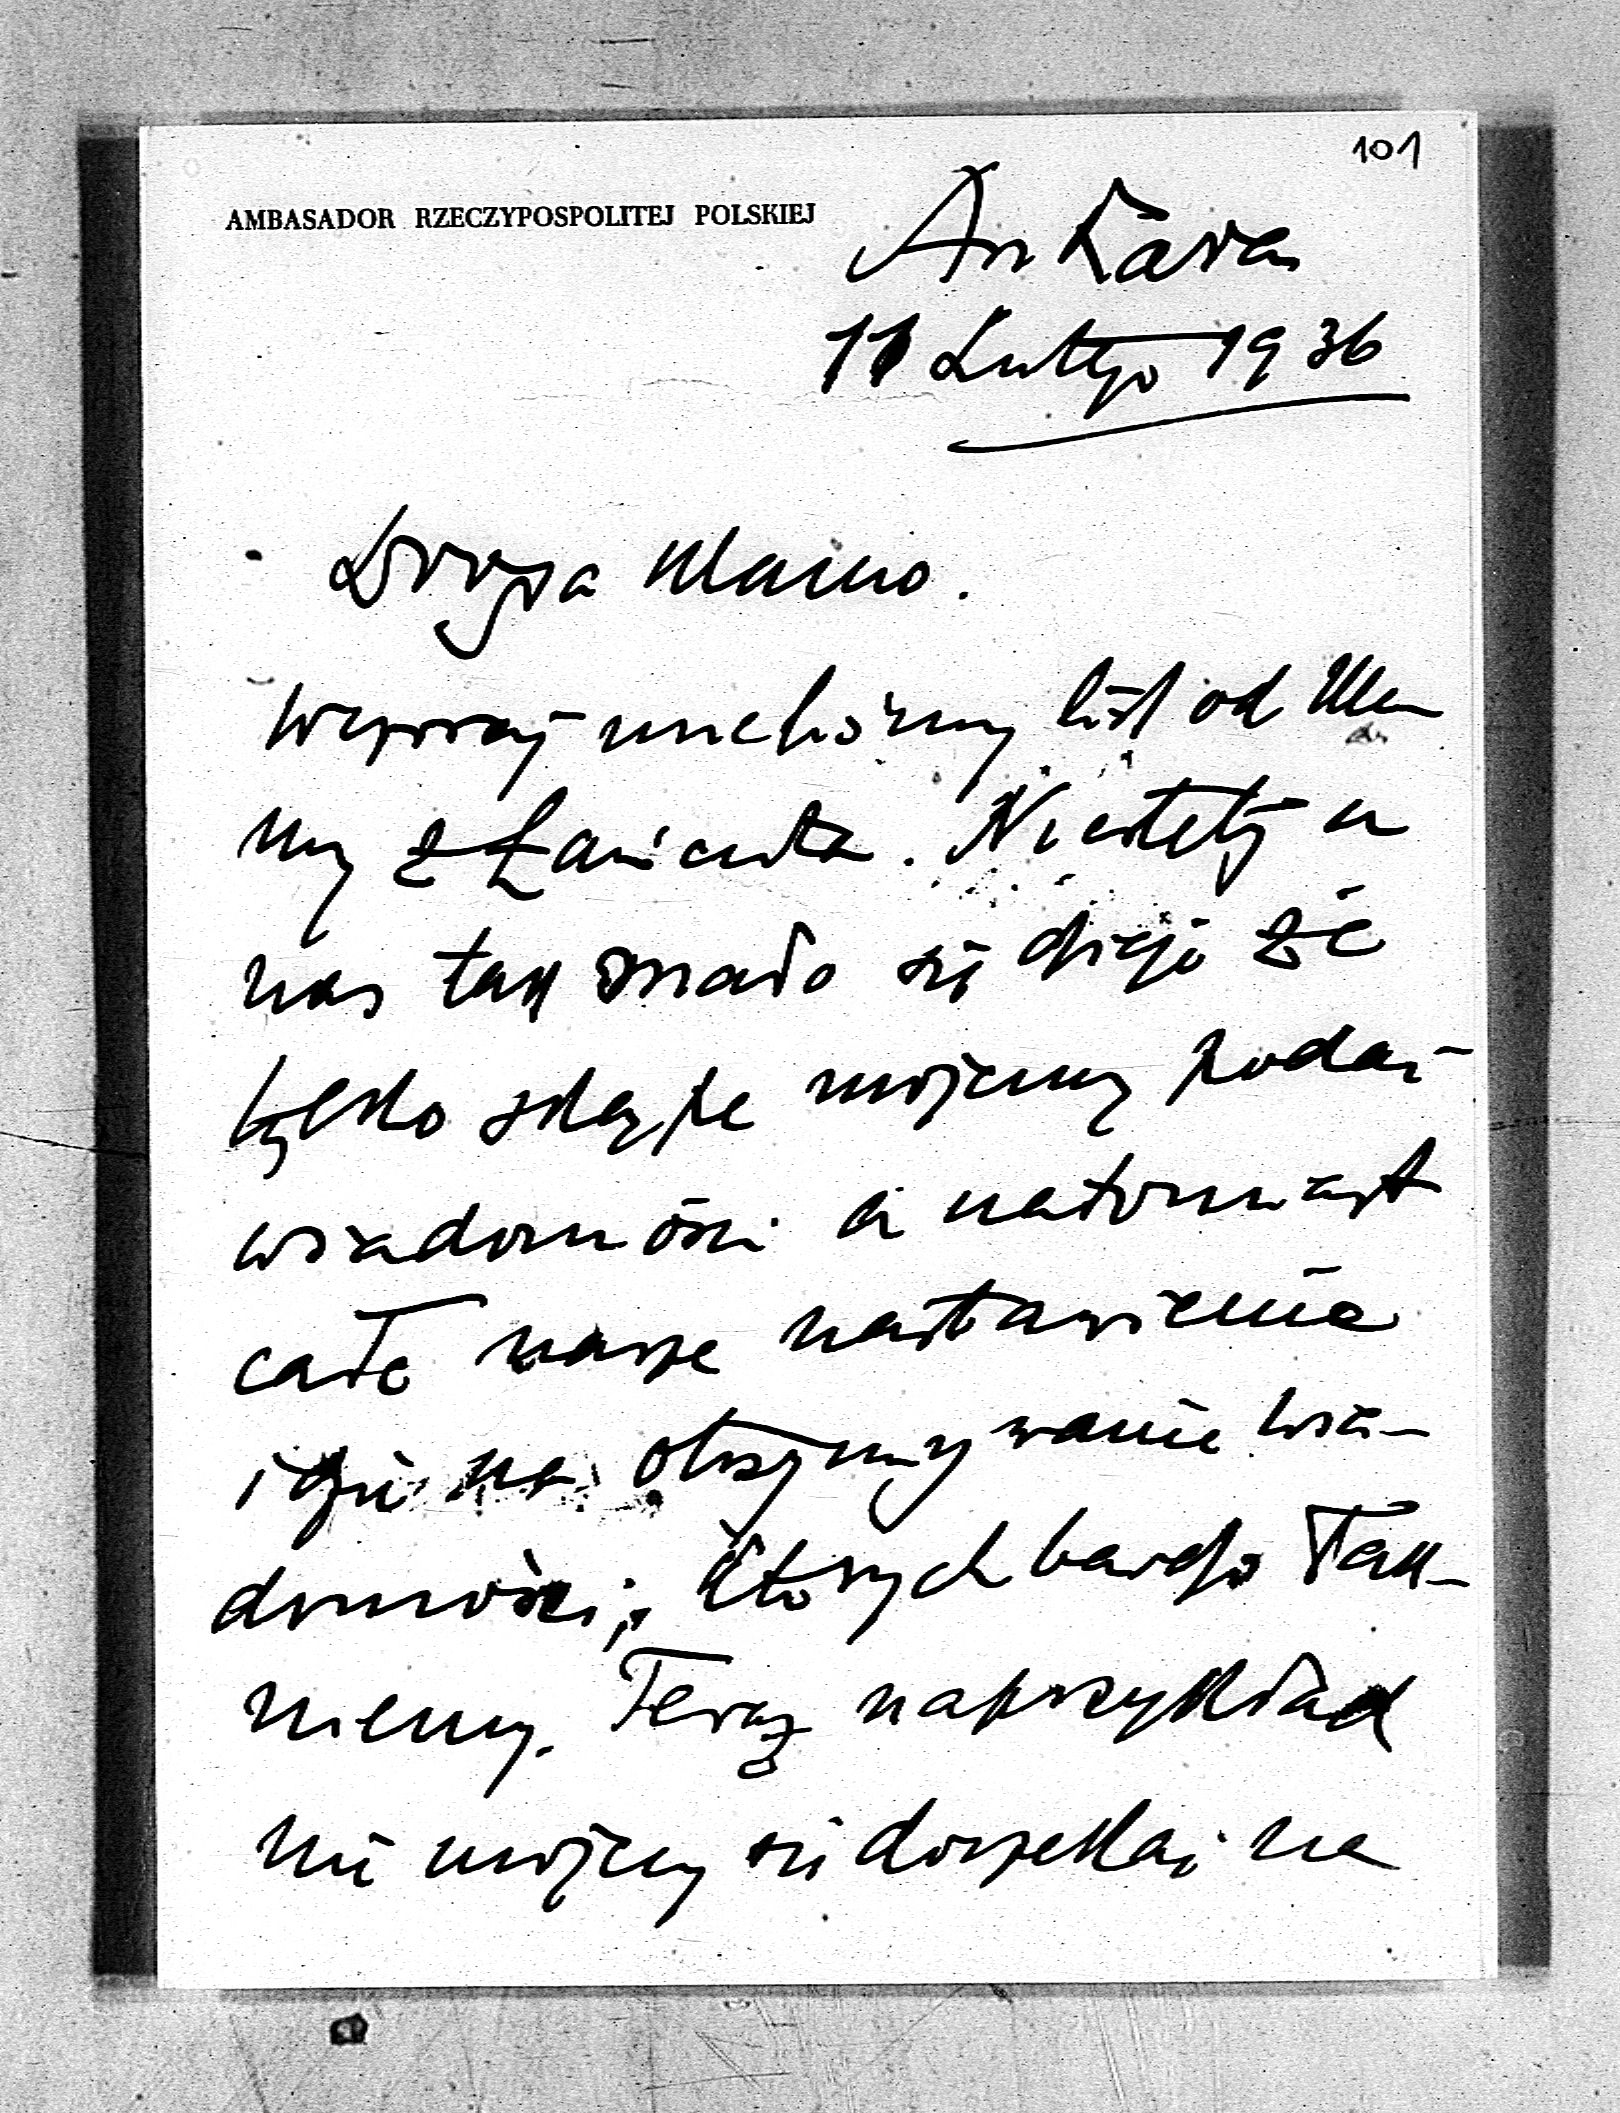 101
AMBASADOR RZECZYPOSPOLITEJ POLSKIEJ
Ankara
11 Lutego 1936
Droga Mamo.
Wczoraj nadszedł list od Ma
my z Łańcuta. Niestety u
nas tak mało się dzieje że
tylko skąpe możemy podać
wiadomości a natomiast
całe nasze nastawienie
idzie na otrzymywanie wia-
domości, których bardzo łak-
niemy. Teraz naprzykład
nie możemy się doczekać na